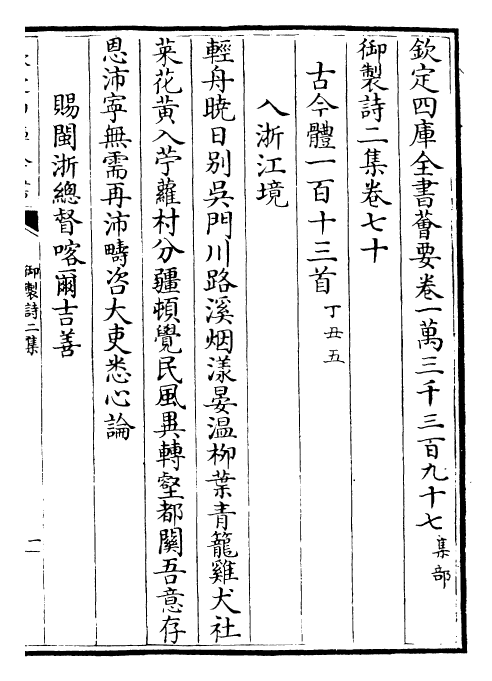 欽定四庫全書薈要卷一萬三千三百九十七集部
御製詩二集卷七十
古今體一百十三首丁丑五
入浙江境
輕舟曉日别吳門川路溪烟漾晏温柳葉青籠雞犬社
菜花黄入苧蘿村分疆頓覺民風異轉壑都關吾意存
恩沛寧無需再沛疇咨大吏悉心論
賜閩浙總督喀爾吉善
御製詩二集
一